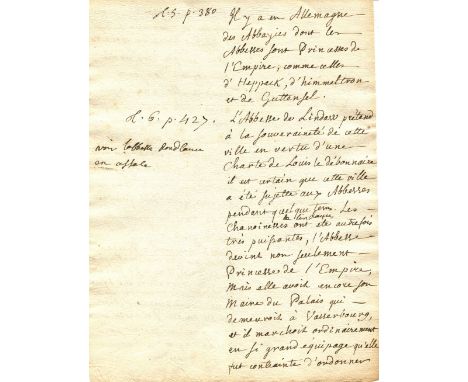 t. 5. p. 380
Il y a en Allemagne
des Abbayies dont les
Abbesses sont Princesses de
l'Empire, comme celles
d'Heppack, d'himmeltron
et de Guttensel.
t. 6. p. 427.
L'Abbesse de Lindaw prétend
à la souveraineté de cette
ville en vertu d'une
Charte de Louis le débonnaire
il est certain que cette ville
a été sujette aux Abbesses
pendant quelque tems. Les
Chanoinesses de Lindaw ont été autrefois
très puissantes, l'Abbesse
devint non seulement
Princesse de l'Empire,
Mais elle avoit encore son
Maire du Palais qui
demeuroit à Vasserbourg,
et il marchoit ordinairement
en si grand equipage qu'elle
fut contrainte d'ordonner